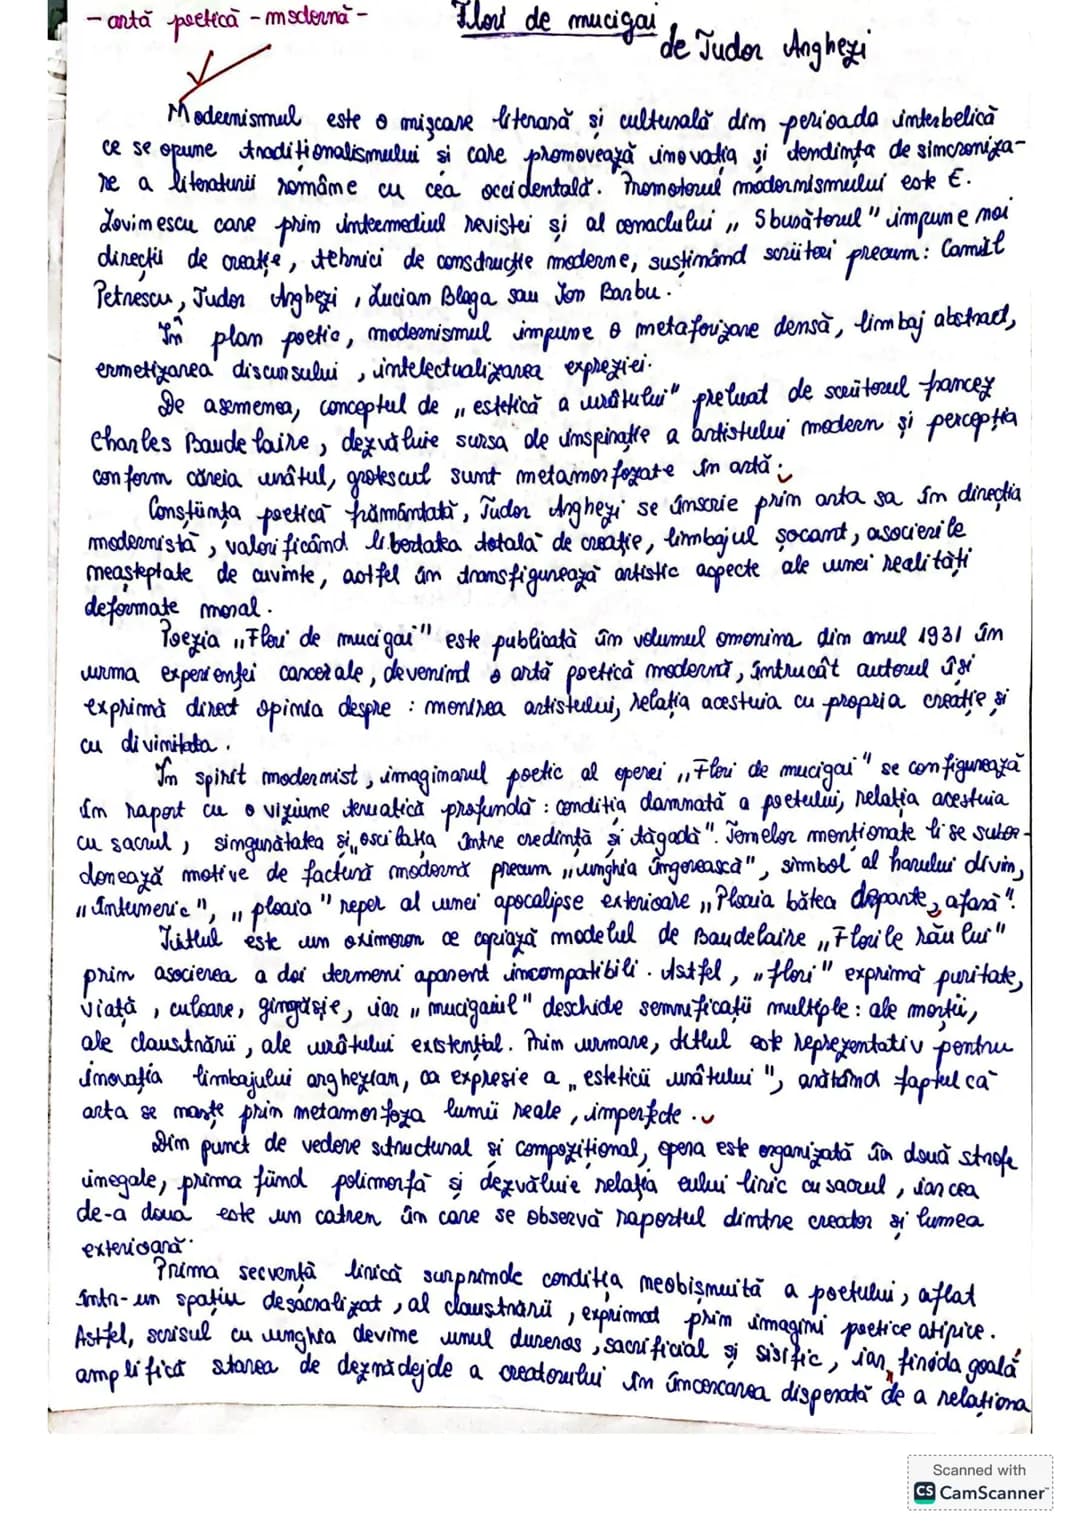 - artă poetică - modernă -
Flori de mucigai
de Tudor Arghezi
Modernismul este o mișcare literară și culturală din perioada interbelică
ce se opune tradiționalismului și care promovează inovația și tendința de sincroniza-
re a literaturii române cu cea occidentală. Promotorul modernismului este E.
Lovinescu care prin intermediul revistei și al cenaclului „Sburătorul" impune noi
direcții de creație, tehnici de construcție moderne, susținând scriitori precum: Camil
Petrescu, Tudor Arghezi, Lucian Blaga sau Ion Barbu.
În plan poetic, modernismul impune o metaforizare densă, limbaj abstract,
ermetizarea discursului, intelectualizarea expreziei.
De asemenea, conceptul de „estetică a urâtului" preluat de scriitorul francez
Charles Baudelaire, dezvăluie sursa de inspirație a artistului modern și percepția
conform căreia urâtul, grotescul sunt metamorfozate în artă.
Conștiința poetică frământată, Tudor Arghezi se înscrie prin arta sa în direcția
modernistă, valorificând libertatea totală de creație, limbajul șocant, asocierile
neașteptate de cuvinte, astfel în transfigurează artistic aspecte ale unei realități
deformate moral.
Poezia „Flori de mucigai" este publicată în volumul omonim din anul 1931 în
urma experienței carcerale, devenind o artă poetică modernă, întrucât autorul își
exprimă direct opinia despre: menirea artistului, relația acestuia cu propria creație și
cu divinitatea.
În spirit modernist, imaginarul poetic al operei „Flori de mucigai" se configurează
în raport cu o viziune tematică profundă: condiția damnată a poetului, relația acestuia
cu sacrul, singurătatea și „oscilația între credință și tăgadă". Temelor menționate li se subor-
donează motive de factură modernă precum „unghia îngerească", simbol al harului divin,
„întuneric", „ploaia" reper al unei apocalipse exterioare „Ploaia bătea departe, afară".
Titlul este un oximoron ce copiază modelul de Baudelaire „Florile răului"
prin asocierea a doi termeni aparent incompatibili. Astfel, „flori" exprimă puritate,
viață, culoare, gingășie, iar „mucigaiul" deschide semnificații multiple: ale morții,
ale claustrării, ale urâtului existențial. Prin urmare, titlul este reprezentativ pentru
inovația limbajului arghezian, ca expresie a „esteticii urâtului", arătând faptul că
arta se naște prin metamorfoza lumii reale, imperfecte.
Din punct de vedere structural și compozițional, opera este organizată în două strofe
inegale, prima fiind polimorfă și dezvăluie relația eului liric cu sacrul, iar cea
de-a doua este un catren în care se observă raportul dintre creator și lumea
exterioară.
Prima secvență lirică surprinde condiția neobișnuită a poetului, aflat
într-un spațiu desacralizat, al claustrării, exprimat prin imagini poetice atipice.
Astfel, scrisul cu unghia devine unul dureros, sacrificial și sisific, iar firida goală
amplifică starea de deznădejde a creatorului în încercarea disperată de a relaționa
Scanned with
CS CamScanner